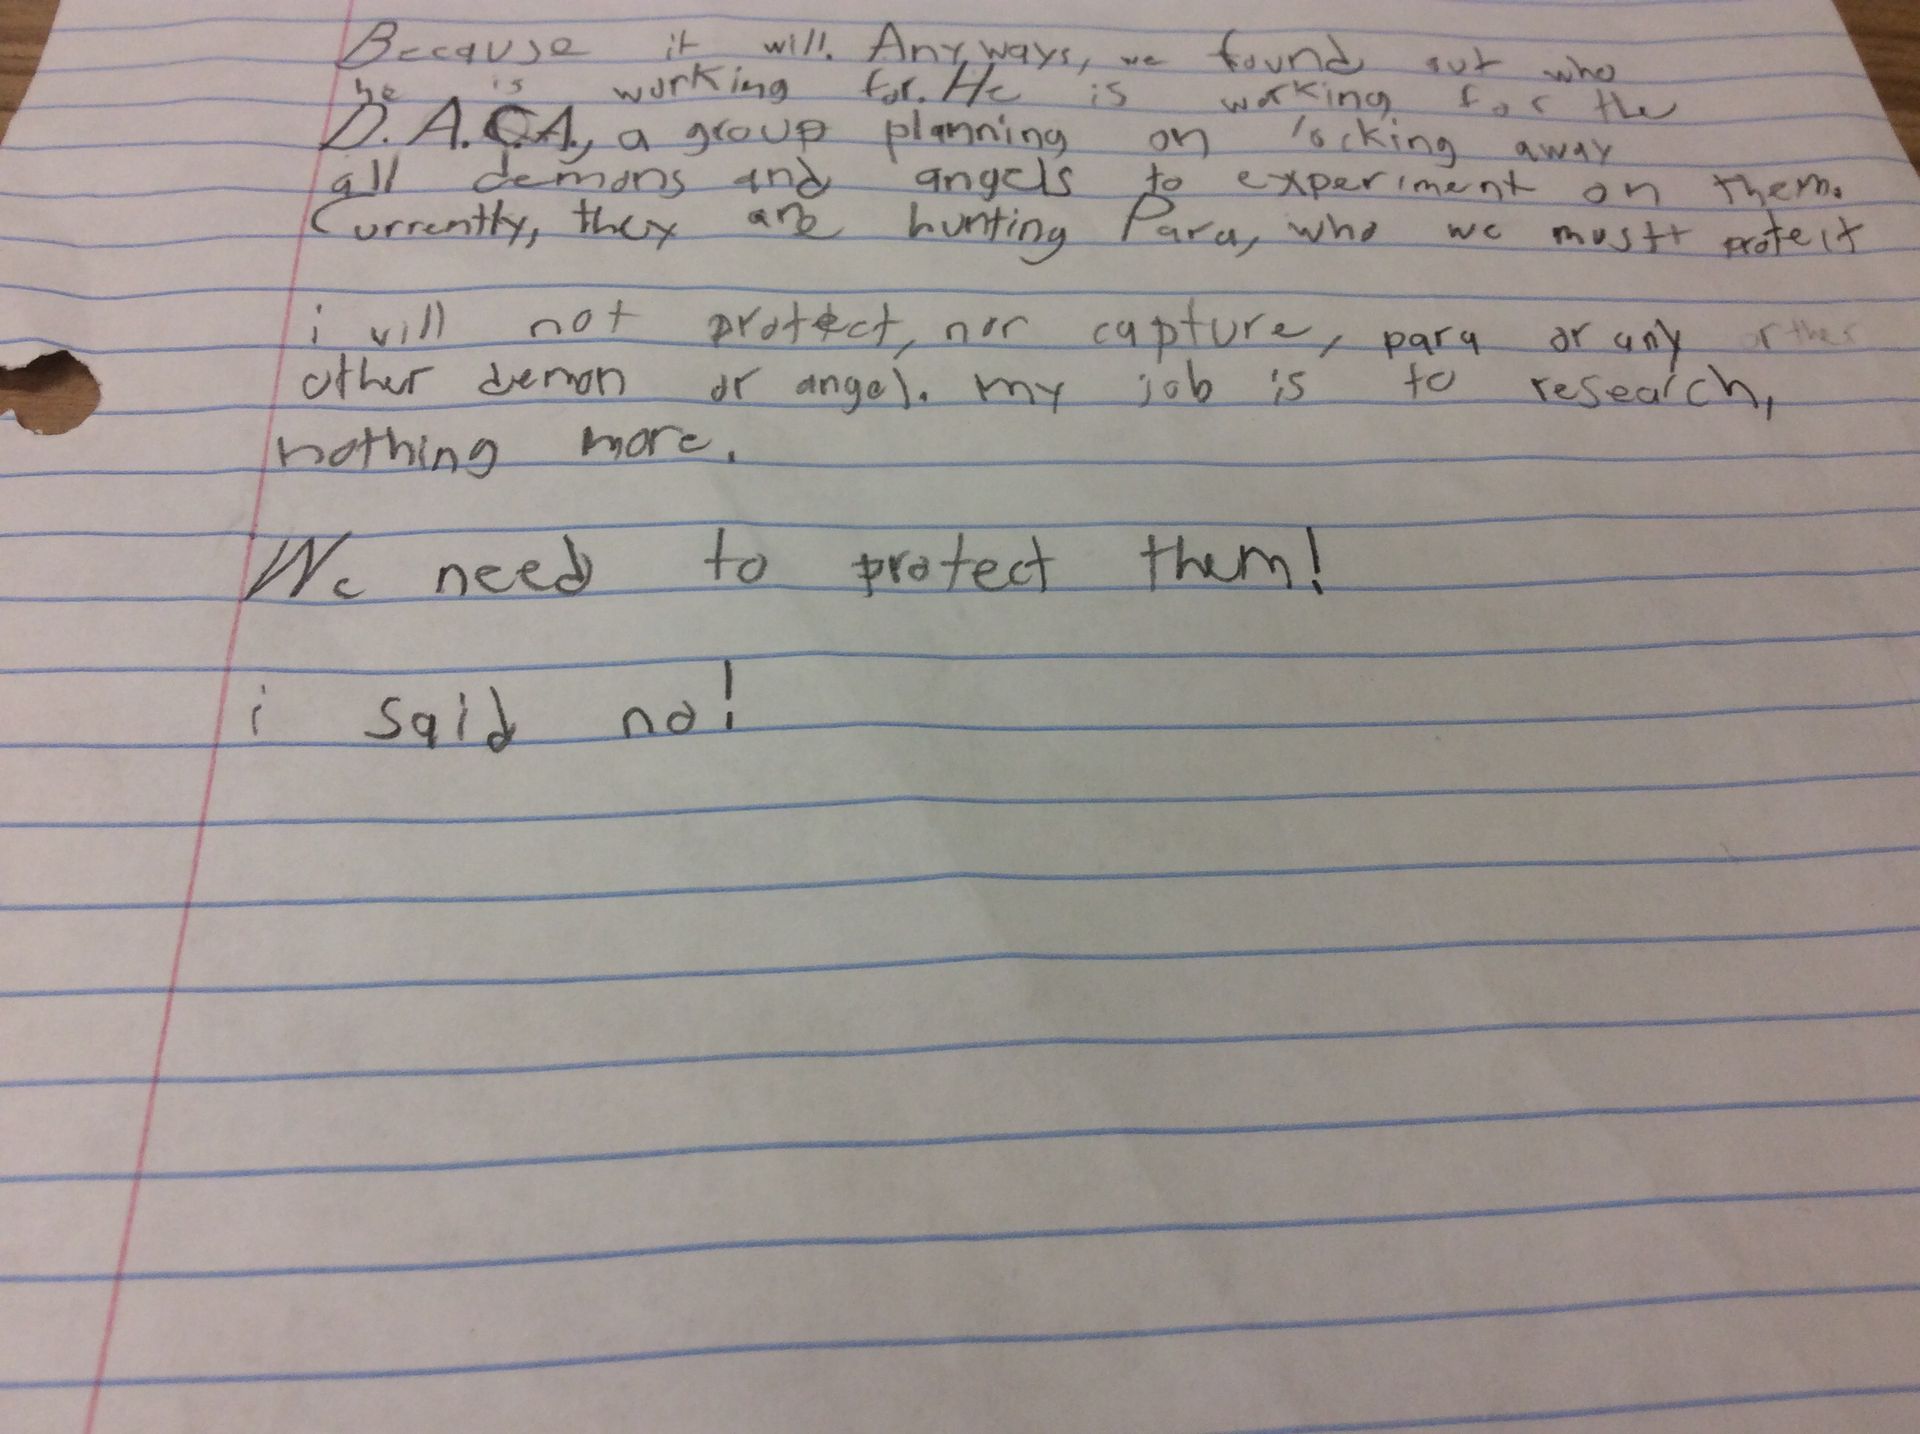 Because it will. Anyways, we found out who
he is working for. He is working for the
D. A. C. A., a group planning on locking away
all demons and angels to experiment on them.
Currently, they are hunting Para, who we mustt protect
i will not protect, nor capture, para or any orther
other demon or angel. my job is to research,
nothing more.
We need to protect them!
i said no!